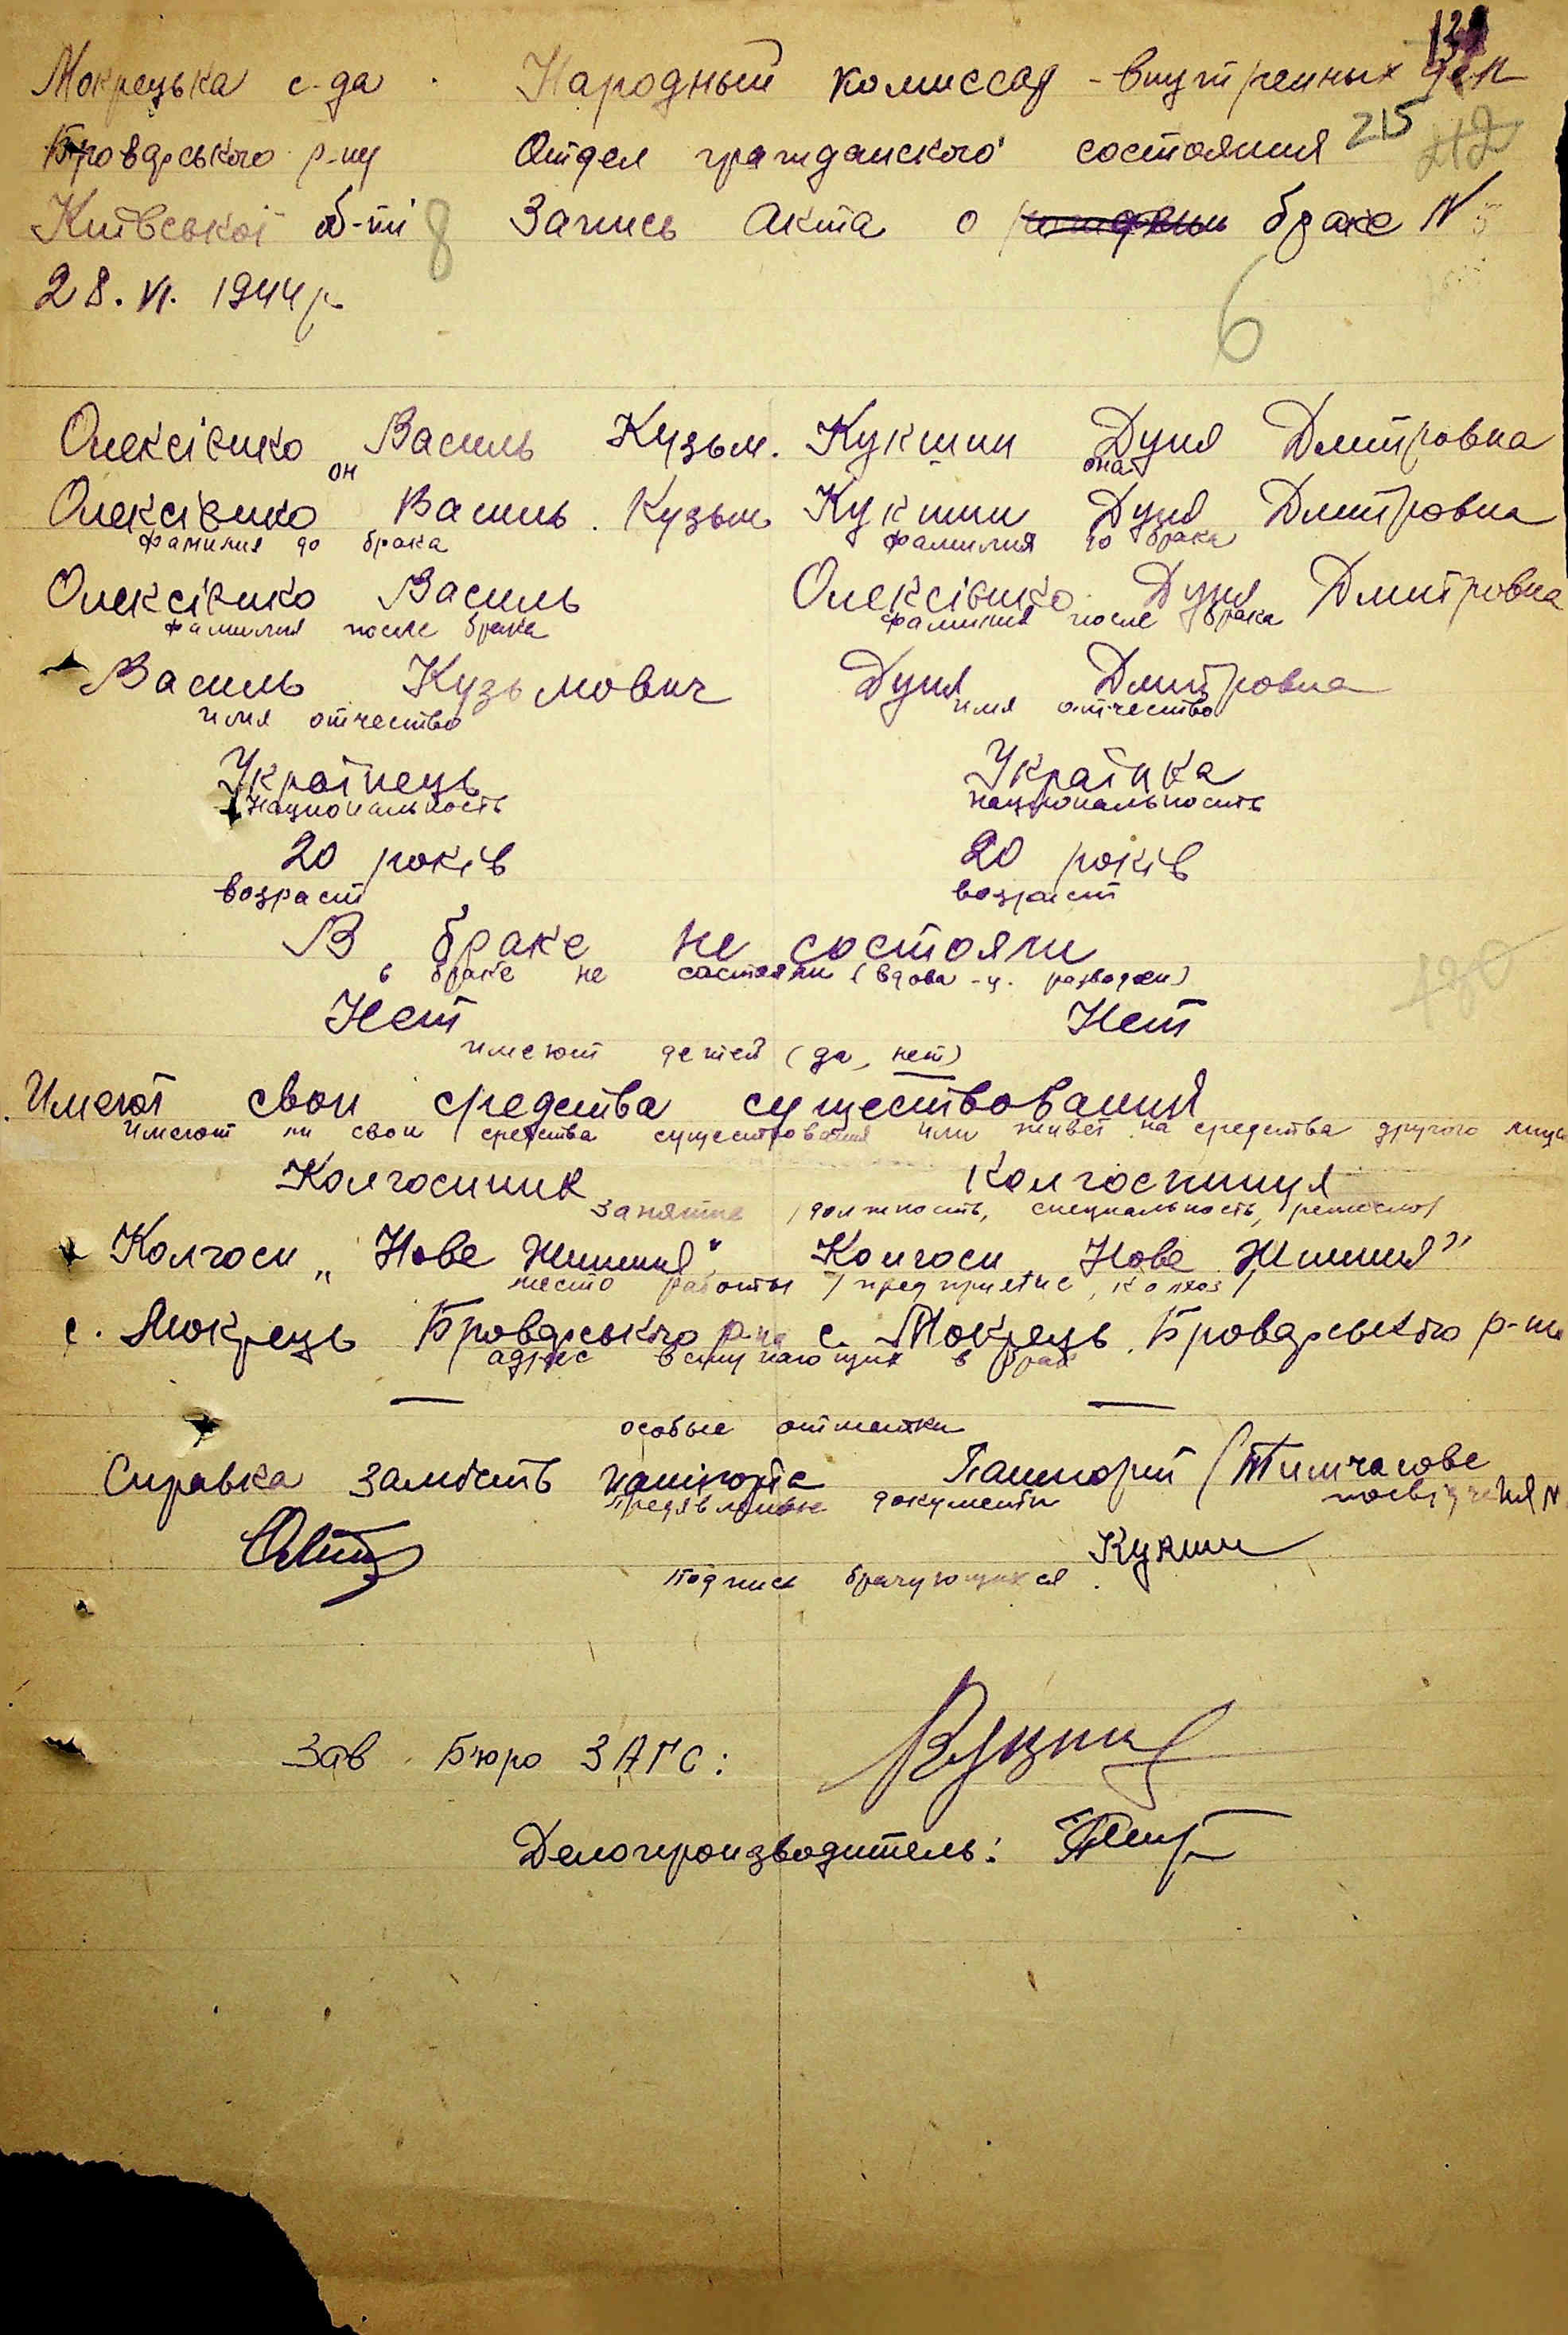 139
Мокрецька с-да
Броварського р-ну
Київської об-ті
28. VI. 1944 р.
Народный комиссар - внутренных дел
Отдел гражданского состояния 215
Запись акта о браке N 5
8
6
Олексієнко Василь Кузьм. Кукшин Дуня Дмитровна
он она
Олексієнко Василь Кузьм Кукшин Дуня Дмитровна
фамилия до брака фамилия до брака
Олексієнко Василь Олексієнко Дуня Дмитровна
фамилия после брака фамилия после брака
Василь Кузьмович Дуня Дмитровна
имя отчество имя отчество
Українець Українка
национальность национальность
20 років 20 років
возраст возраст
В браке не состояли
в браке не состояли (вдова -ц. разведен)
Нет Нет
имеют детей (да, нет)
Имеют свои средства существования
имеют ли свои средства существования или живет на средства другого лица
Колгоспник Колгоспниця
занятие /должность, специальность, ремесло/
Колгосп „Нове Життя" Колгосп Нове Життя"
место работы /предприятие, колхоз/
с. Мокрець Броварського р-на с. Мокрець Броварського р-ну
адрес вступающих в брак
— —
особые отметки
Справка замість пашпорта Пашпорт (Тимчасове
посвідчення N
предявленные документы
Кукшин
подпись брачующихся
Зав Бюро ЗАГС:
Делопроизводитель: